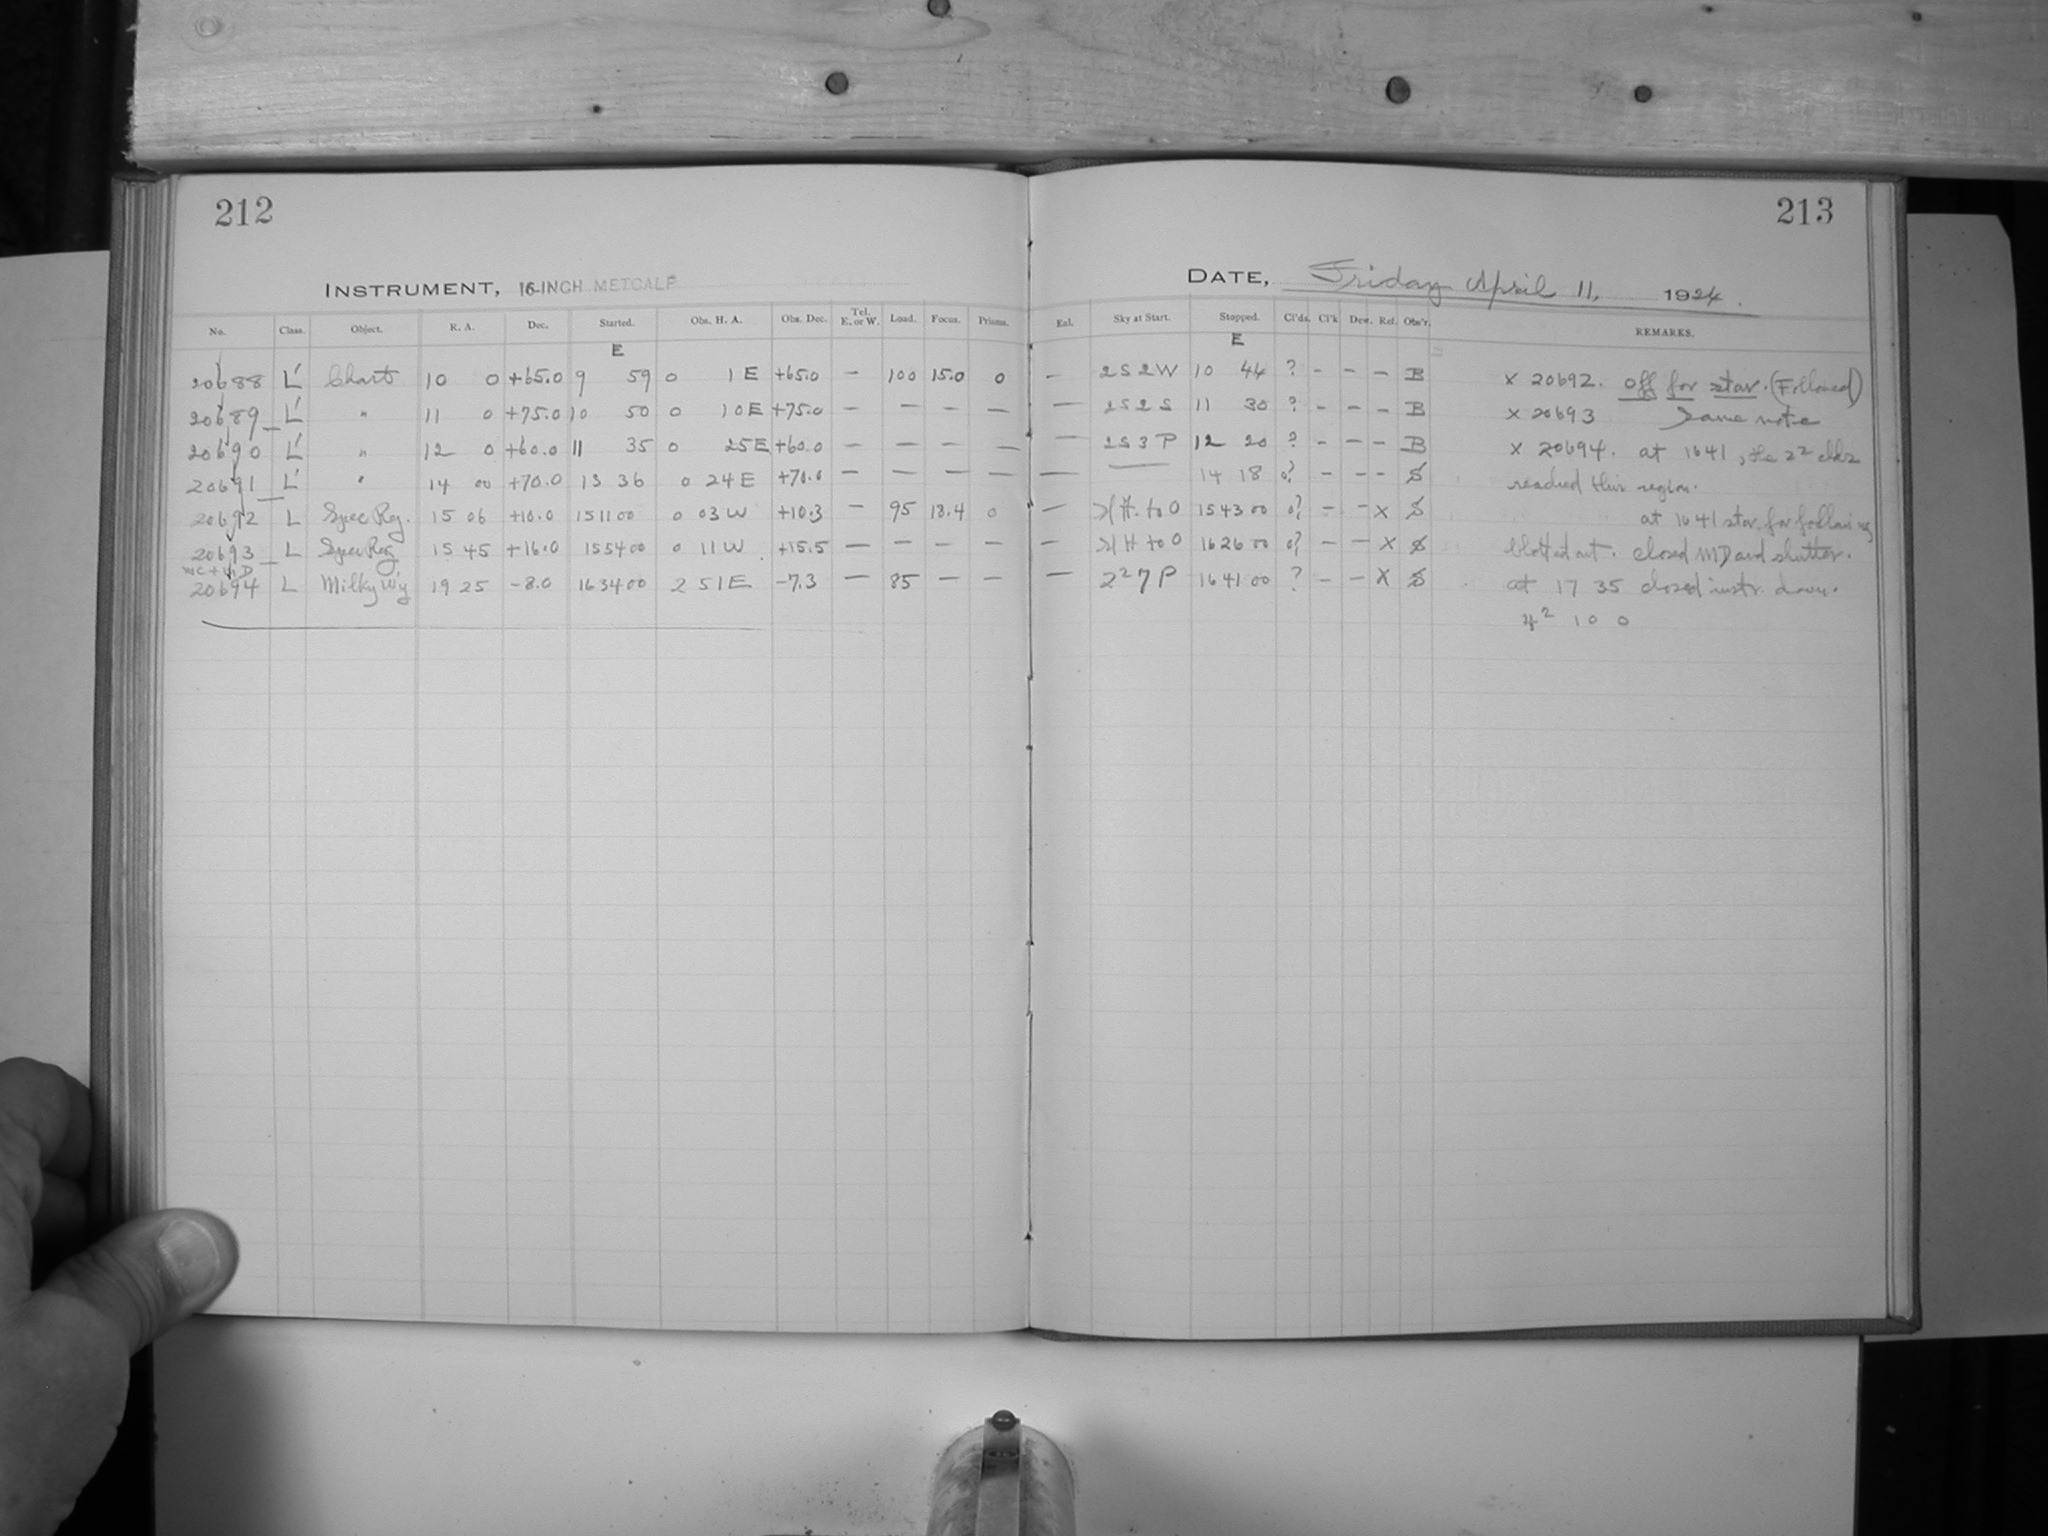 212
INSTRUMENT, 16-INCH METCALF
No. Class. Object. R. A. Dec. Started. Obs. H. A. Obs. Dec. Tel. E. or W. Load. Focus. Prisms.
E
20688 L' Chart 10 0 +65.0 9 59 0 1 E +65.0 — 100 15.0 0
20689 L' " 11 0 +75.0 10 50 0 10 E +75.0 — — — —
20690 L' " 12 0 +60.0 11 35 0 25 E +60.0 — — — —
20691 L' " 14 00 +70.0 13 36 0 24 E +70.0 — — — —
20692 L Spec Reg. 15 06 +10.0 15 11 00 0 03 W +10.3 — 95 13.4 0
20693 L Spec Reg 15 45 +16.0 15 54 00 0 11 W +15.5 — — — —
MC + MD
20694 L Milky Wy 19 25 -8.0 16 34 00 2 51 E -7.3 — 85 — —
213
DATE, Friday April 11, 1924.
Enl. Sky at Start. Stopped. Cl'ds. Cl'k Dew. Ref. Obs'r. REMARKS.
E
— 2 S 2 W 10 44 ? - - - B x 20692. off for star. (Followed)
— 2 S 2 S 11 30 ? - - - B x 20693 Same note
— 2 S 3 P 12 20 ? - - - B x 20694. at 1641, the 2² clds
— 14 18 0? - - - S reached this region.
H. to 0 15 43 00 0? - - x S at 1641 star for following
— H to 0 16 26 00 0? - - x S blotted out. closed MD and shutter.
— 2² 7 P 16 41 00 ? - - x S at 17 35 closed instr. down.
4² 10 0